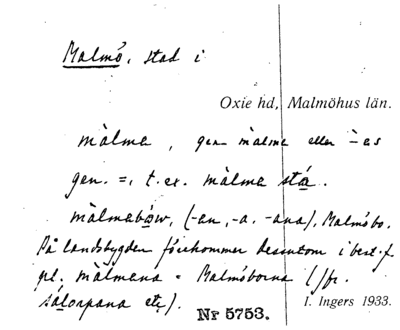 Malmö, stad i
Oxie hd, Malmöhus län.
màlma, gen màlma eller -̀as
gen. =, t. ex. màlma stá.
màlmabów, (-an, -a, -ana), Malmöbo.
På landsbygden förekommer dessutom i best. f.
pl. màlmana = Malmöborna (jfr.
etc).
I. Ingers 1933.
Nr 5753.